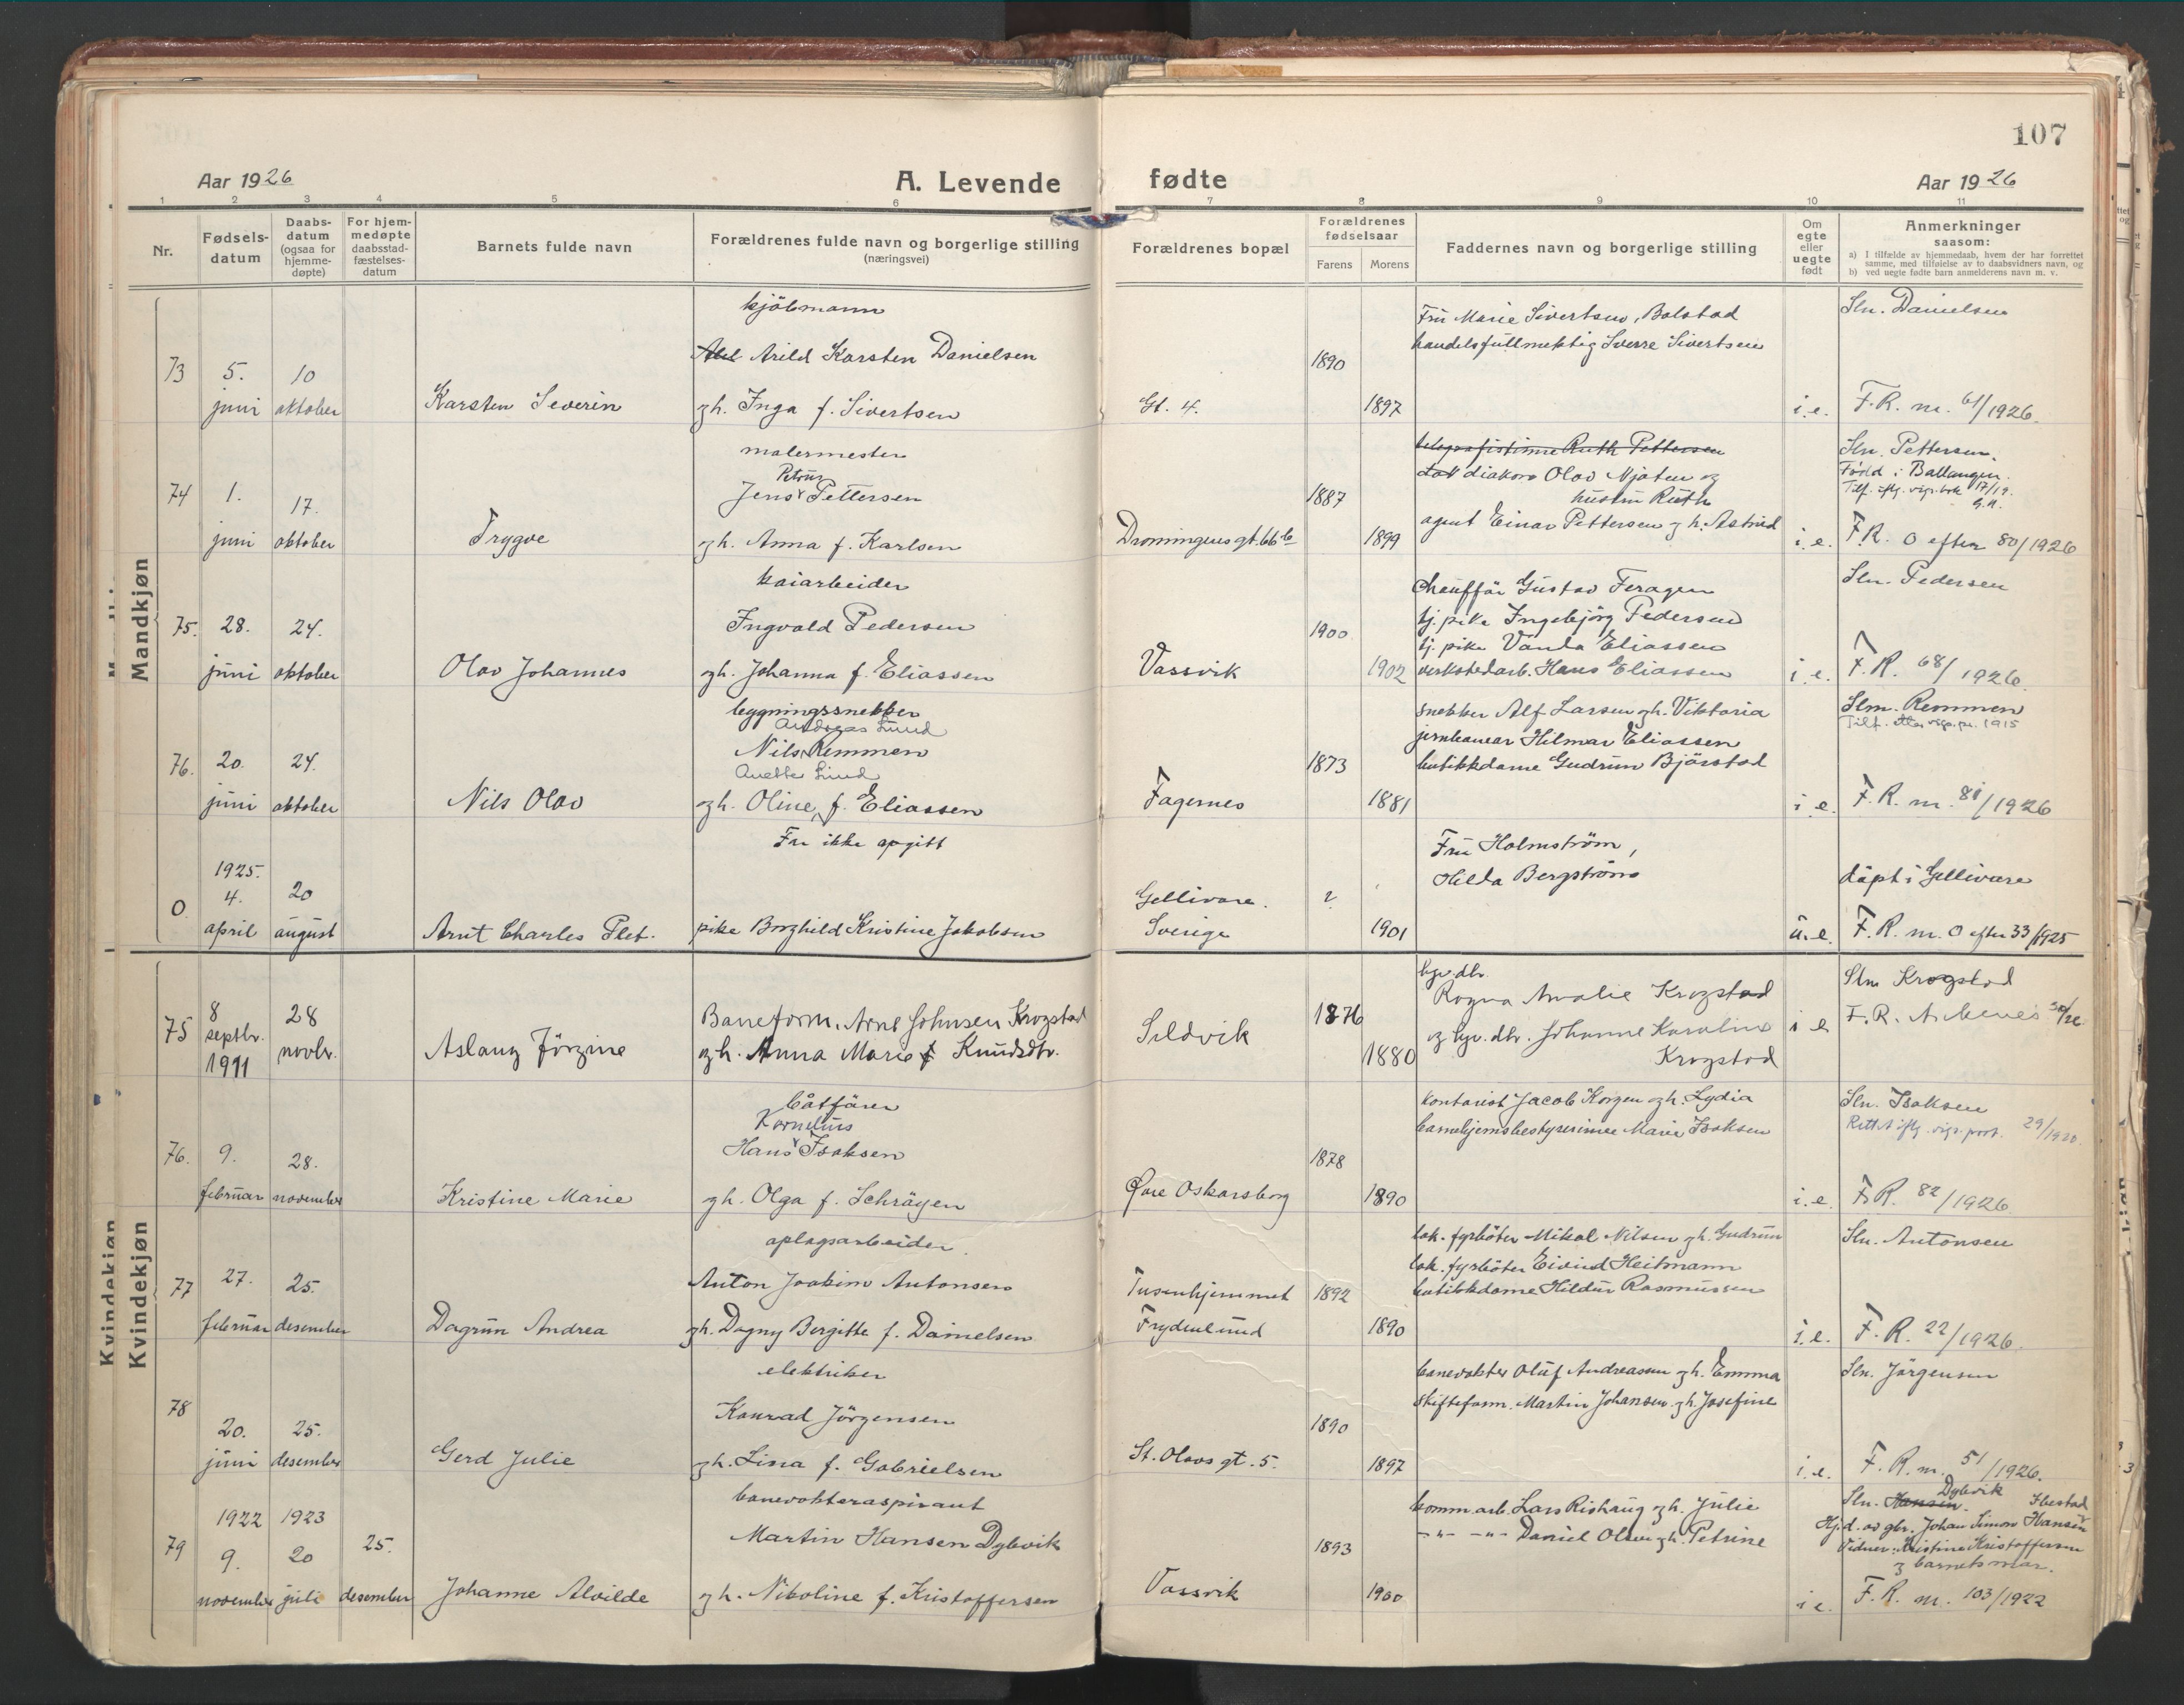 107
Aar 1926
A. Levende fødte
Aar 1926
1 2 3 4 5 6 7 8 9 10 11
Nr.
Fødsels-
datum
Daabs-
datum
(ogsaa for
hjemme-
døpte)
For hjem-
medøpte
daabsstad-
fæstelses-
datum
Barnets fulde navn
Forældrenes fulde navn og borgerlige stilling
(næringsvei)
Forældrenes bopæl
Forældrenes
fødselsaar
Farens
Morens
Faddernes navn og borgerlige stilling
Om
egte
eller
uegte
født
Anmerkninger
saasom:
a) I tilfælde av hjemmedaab, hvem der har forrettet
samme, med tilføielse av to daabsvidners navn, og
b) ved uegte fødte barn anmelderens navn m. v.
Mandkjøn
73
5.
juni
10
oktober
Karsten Severin
kjöbmann
Arild Karsten Danielsen
og h. Inga f. Sivertsen
Gt. 4.
1890
1897
Fru Marie Sivertsen, Bolstad
handelsfullmektig Sverre Sivertsen
i. e.
Sln. Danielsen
F. R. nr. 61/1926.
74
1.
juni
17.
oktober
Trygve
malermester
Petrus
Jens Pettersen
og h. Anna f. Karlsen
Dronningens gt. 66 b
1887
1899
telegrafistinne Ruth Pettersen
diakon Olav Njøten og
hustru Ruth
agent Einar Pettersen og h. Astrid
i. e.
Sln. Pettersen.
Född i Ballangen.
Tilf. iflg. vigs. bok 17/19.
G.N.
F. R. 0 efter 80/1926
75.
28.
juni
24.
oktober
Olav Johannes
kaiarbeider
Ingvald Pedersen
og h. Johanna f. Eliassen
Vassvik
1900
1902
Chaufför Gustav Feragen
tj. pike Ingebjörg Pedersen
tj. pike Vanda Eliassen
verkstedarb. Hans Eliassen
i. e.
Sln. Pedersen
F. R. 68/1926.
76.
20.
juni
24.
oktober
Nils Olav
bygningssnekker
Andreas Lund
Nils Remmen
Anette Lind
og h. Oline f. Eliassen
Fagernes
1873
1881
snekker Alf Larsen og h. Viktoria
jernbanear Hilmar Eliassen
butikkdame Gudrun Bjørstad
i. e.
Slm. Remmen
Tilf. etter vigs. pr. 1915
F. R. nr. 81/1926
0
1925.
4.
april
20
august
Arnt Charles Plet.
Far ikke opgitt
pike Borghild Kristine Jakobsen
Gellivare.
Sverige
?
1901
Fru Holmström,
Hilda Bergström
u. e.
döpt i Gellivare
F. R. nr. 0 efter 33/1925
Kvindekjøn
75
8
septbr.
1911
28
novbr.
Aslaug Jörgine
Baneform. Arnt Johnsen Krogstad
og h. Anna Marie f. Knudsdtr.
Sildvik
1876
1880
bgr. dtr.
Ragna Amalie Krogstad
og bgr. dtr. Johanne Karoline
Krogstad
i e
Slm Krogstad
F. R. Ankenes
76.
9.
februar
28.
november
Kristine Marie
båtfører
Kornelius
Hans Isaksen
og h. Olga f. Schrøyen
Øvre Oskarsborg
1878
1890
kontorist Jacob Korgen og h. Lydia
barnehjemsbestyrerinne Marie Isaksen
i. e.
Sln. Isaksen
Rettet iflg. vigs. prot. 29/1920.
F. R. 82/1926
77
27.
februar
25.
desember
Dagrun Andrea
oplagsarbeider.
Anton Joakim Antonsen
og h. Dagny Bergitte f. Danielsen
Tusenhjemmet
Frydenlund
1892
1890
lok. fyrböter Mikal Nilsen og h. Gudrun
lok. fyrböter Eivind Heitmann
butikkdame Hildur Rasmussen
i. e.
Sln. Antonsen
F. R. 22/1926.
78
20.
juni
25.
desember
Gerd Julie
elektriker
Konrad Jörgensen
og h. Lina f. Gabrielsen
St. Olavs gt. 5.
1890
1897
banevokter Oluf Andreassen og h. Emma
skifteform. Martin Johansen og h. Josefine
i. e.
Sln. Jörgensen
F. R. nr. 51/1926.
79
1922
9.
november
1923
20
juli
25.
desember
Johanne Alvilde
banevokteraspirant
Martin Hansen Dybvik
og h. Nikoline f. Kristoffersen
Vassvik
1893
1900
komm. arb. Lars Rishaug og h. Julie
-"- -"- Daniel Olsen og h. Petrine
i e.
Dybvik
Sln. Hansen. Ibestad
Hj. d. av gbr. Johan Simon Hansen
Vidner: Kristine Kristoffersen
og barnets mor.
F. R. nr. 103/1922